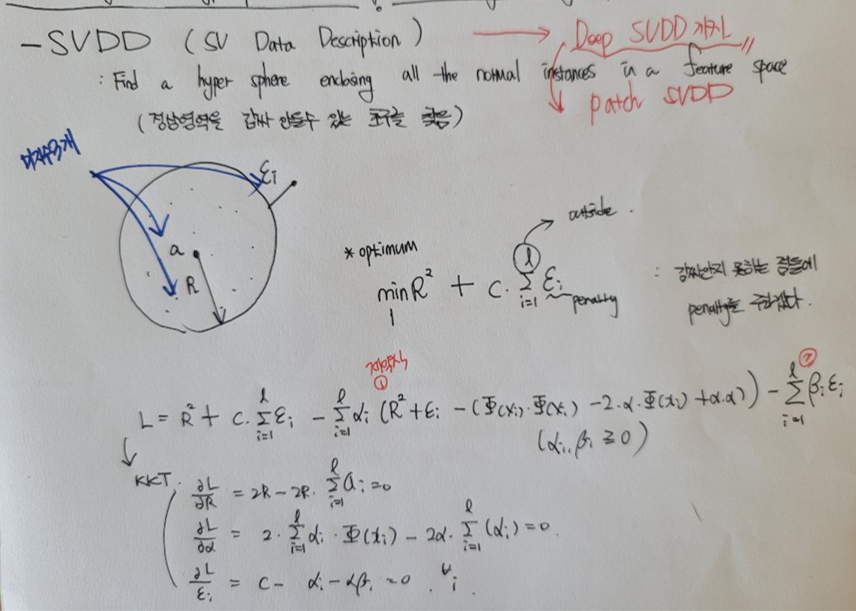 - SVDD ( SV Data Description ) → Deep SVDD 까지
: Find a hyper sphere enclosing all the normal instances in a feature space
patch SVDD
(정상영역을 감싸 안을수 있는 초구를 찾음)
ξi
a
R
* optimum
outside.
min R² + C. Σ_{i=1}^{l} ξi
penalty
: 감싸안지 못하는 점들에
penalty를 주겠다.
제약식
① ②
L = R² + C. Σ_{i=1}^{l} ξi - Σ_{i=1}^{l} αi (R² + ξi - (Φ(xi)·Φ(xi) - 2·α·Φ(xi) + α.α)) - Σ_{i=1}^{l} βi ξi
(αi, βi ≥ 0)
KKT.
∂L/∂R = 2R - 2R. Σ_{i=1}^{l} αi = 0
∂L/∂α = 2· Σ_{i=1}^{l} αi · Φ(xi) - 2α· Σ_{i=1}^{l} (αi) = 0.
∂L/ξi = C - αi - αβi = 0 . ∀i